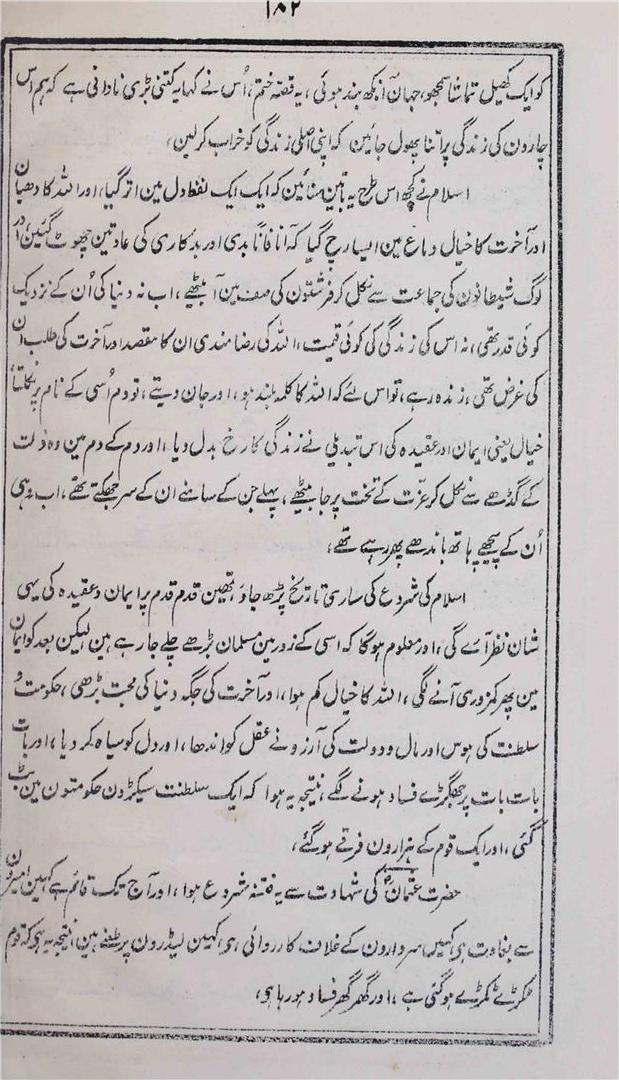 ۱۸۲
کو ایک کھیل تماشا سمجھو، جہان آنکھ بند ہوئی، یہ قصہ ختم، اُس نے کہا یہ کتنی بڑی نادانی ہے کہ ہم اس
چار دن کی زندگی پر اتنا پھول جائین کہ اپنی اصلی زندگی کو خراب کر لین،
اسلام نے کچھ اس طرح یہ باتین سنائین کہ ایک ایک لفظ دل مین اتر گیا، اور اللہ کا دھیان
اور آخرت کا خیال دماغ مین ایسا رچ گیا کہ آناً فاناً بدی اور بدکاری کی عادتین چھوٹ گئین، اور
لوگ شیطانون کی جماعت سے نکل کر فرشتون کی صف مین آ بیٹھے، اب نہ دنیا کی اُن کے نزدیک
کوئی قدر تھی، نہ اس کی زندگی کی کوئی قیمت، اللہ کی رضامندی ان کا مقصد اور آخرت کی طلب ان
کی غرض تھی، زندہ رہے، تو اس لئے کہ اللہ کا کلمہ بلند ہو، اور جان دیتے، تو دم اُسی کے نام پر نکلتا،
خیال یعنی ایمان اور عقیدہ کی اس تبدیلی نے زندگی کا رخ بدل دیا، اور دم کے دم مین وہ ذلت
کے گڈھے سے نکل کر عزّت کے تخت پر جا بیٹھے، پہلے جن کے سامنے ان کے سر جھکتے تھے، اب وہی
اُن کے پیچھے ہاتھ باندھے پھر رہے تھے،
اسلام کی شروع کی ساری تاریخ پڑھ جاؤ، تمھین قدم قدم پر ایمان و عقیدہ کی یہی
شان نظر آئے گی، اور معلوم ہوگا کہ اسی کے زور مین مسلمان بڑھے چلے جا رہے ہین لیکن بعد کو ایمان
مین پھر کمزوری آنے لگی، اللہ کا خیال کم ہوا، اور آخرت کی جگہ دنیا کی محبت بڑھی، حکومت و
سلطنت کی ہوس اور مال و دولت کی آرزو نے عقل کو اندھا، اور دل کو سیاہ کر دیا، اور بات
بات بات پر جھگڑے فساد ہونے لگے، نتیجہ یہ ہوا کہ ایک سلطنت سیکڑون حکومتون مین بٹ
گئی، اور ایک قوم کے ہزارون فرقے ہوگئے،
حضرت عثمانؓ کی شہادت سے یہ فتنہ شروع ہوا، اور آج تک قائم ہے کہین امیرون
سے بغاوت ہی کہین سردارون کے خلاف کارروائی ہی، کہین لیڈرون پر طعنے ہین، نتیجہ یہ ہی کہ قوم
ٹکڑے ٹکڑے ہوگئی ہے، اور گھر گھر فساد ہو رہا ہی،